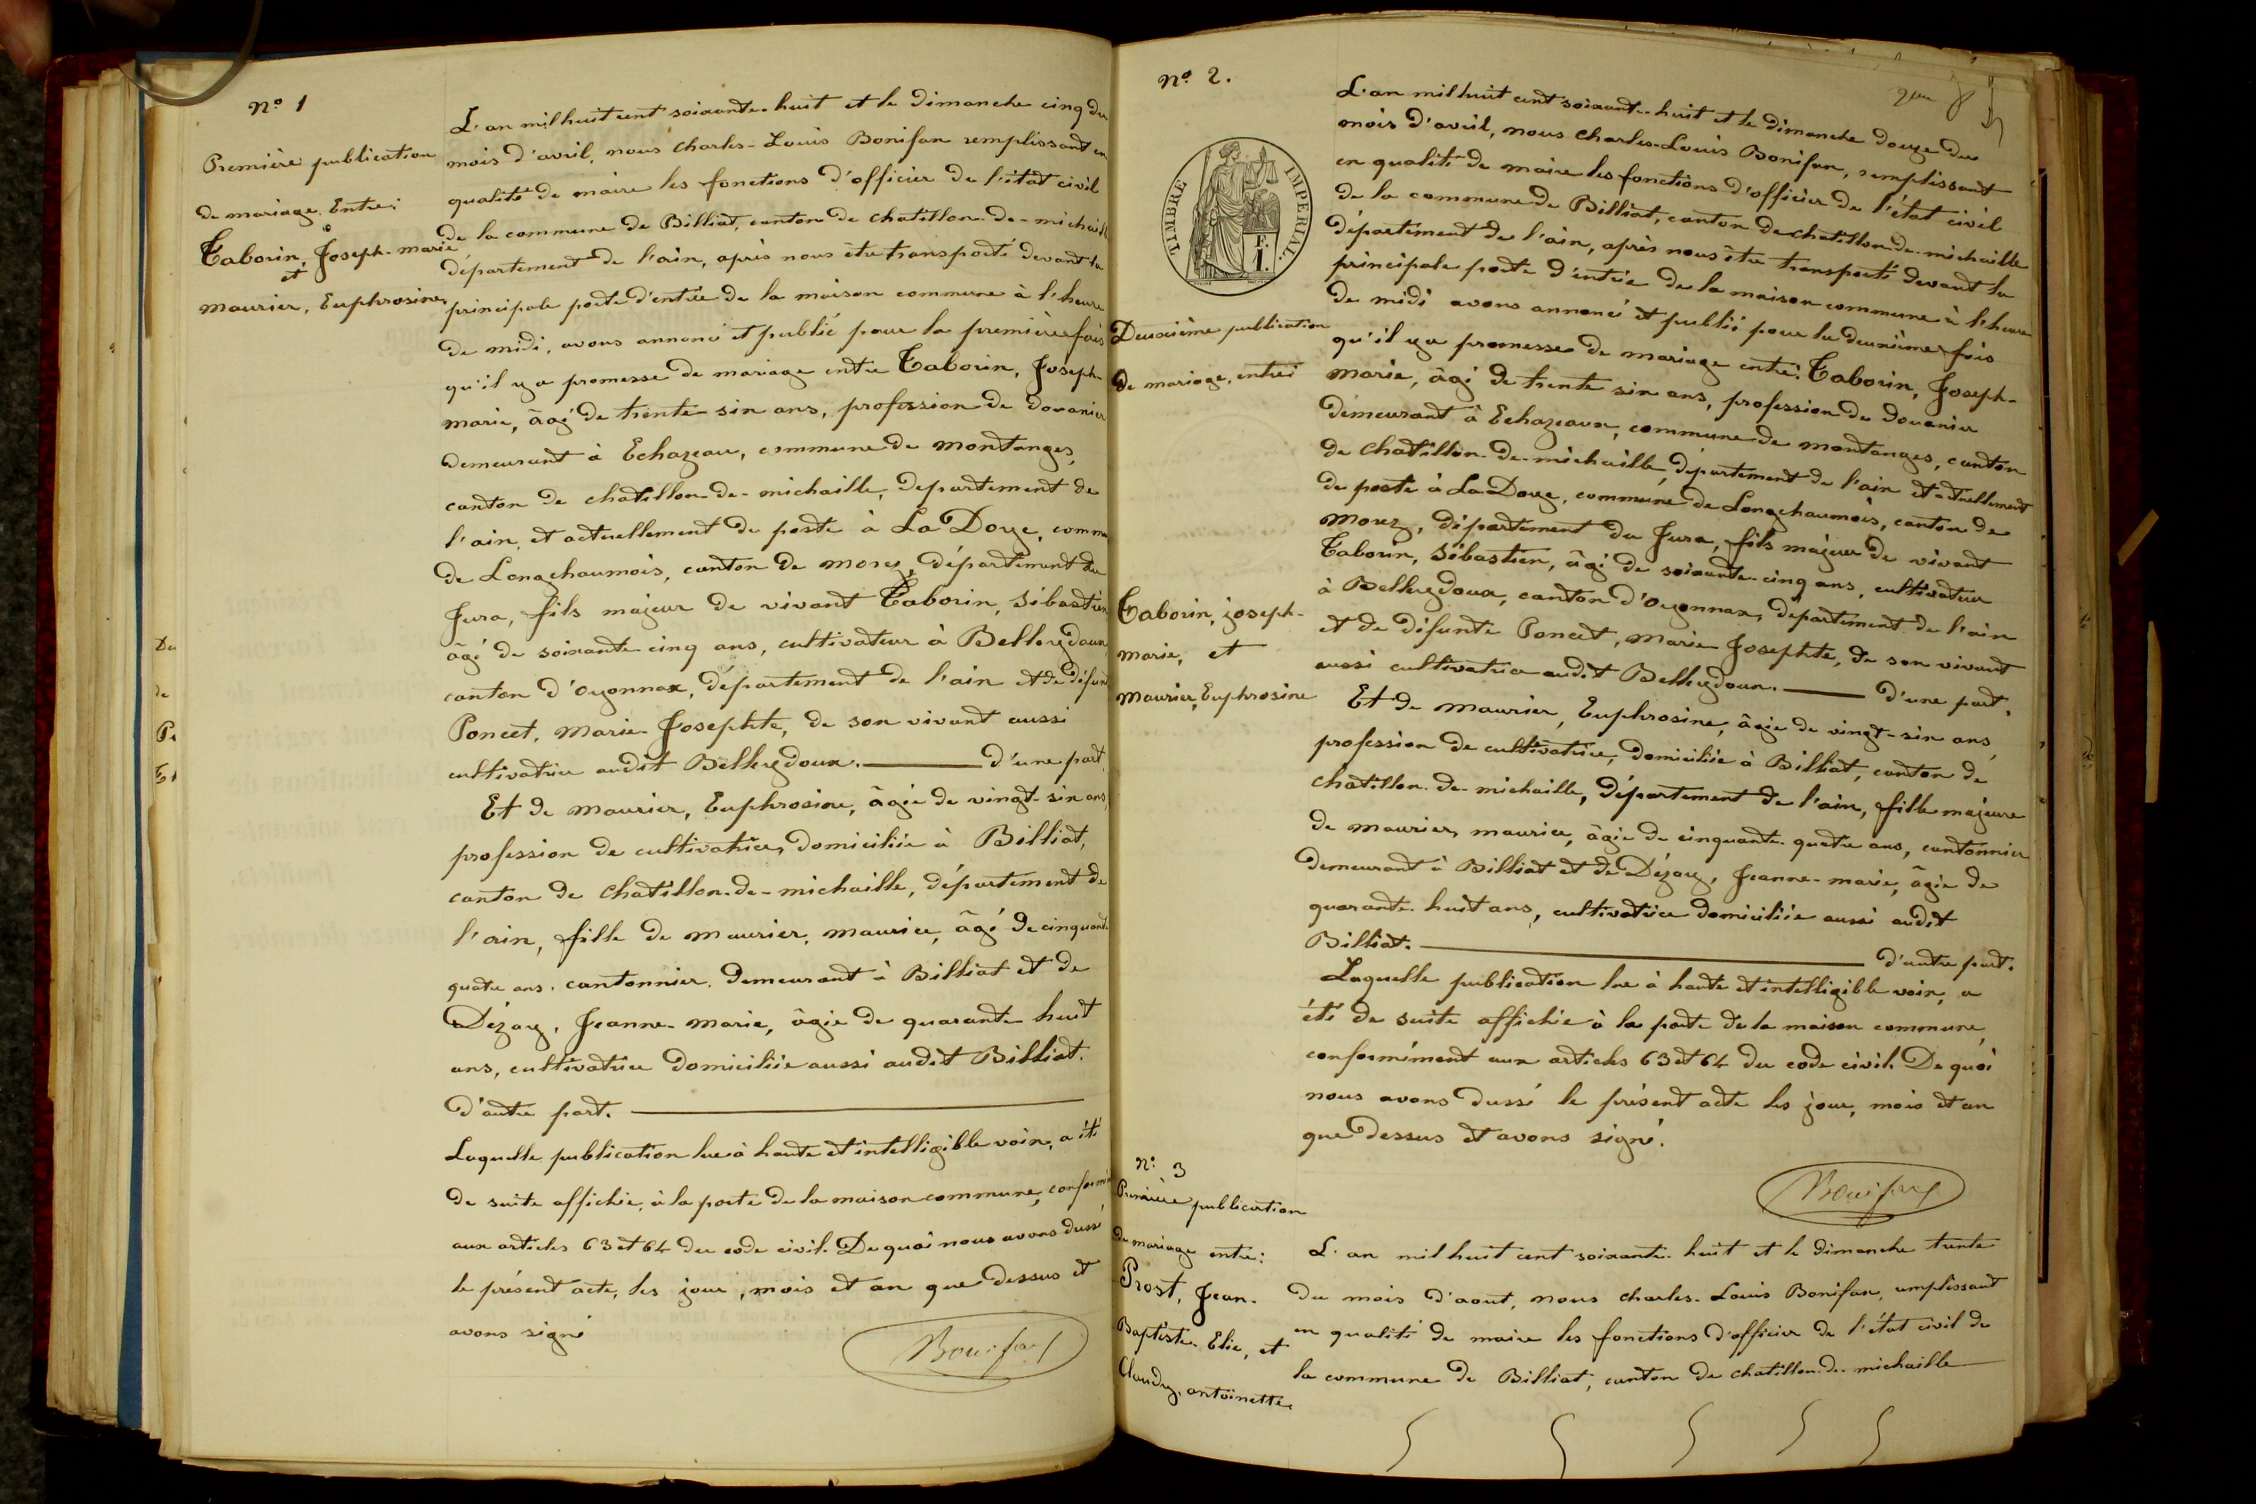 Nº 1
Première publication
de mariage. Entre:
Taborin, Joseph-marie
et
maurier, Euphrosine
L'an mil huit cent soixante-huit et le dimanche cinq du
mois d'avril, nous charles-Louis Bonifan remplissant en
qualité de maire les fonctions d'officier de l'état civil
de la commune de Billiat, canton de chatillon-de-michaill
département de l'ain, après nous être transporté devant la
principale porte d'entrée de la maison commune à l'heure
de midi, avons annoncé et publié pour la première fois
qu'il y a promesse de mariage entre Taborin, Joseph-
marie, âgé de trente-six ans, profession de douanier
demeurant à Echazeau, commune de montanges,
canton de chatillon-de-michaille, departement de
l'ain, et actuellement de poste à La Doye, commu
de Longchaumois, canton de morez, département du
Jura, fils majeur de vivant Taborin, Sébastien
âgé de soixante cinq ans, cultivateur à Belleydoux,
canton d'oyonnax, département de l'ain et de défunt
Poncet, Marie-Josephte, de son vivant aussi
cultivatrice audit Belleydoux. d'une part,
Et de maurier, Euphrosine, âgée de vingt-six ans,
profession de cultivatrice, domiciliée à Billiat,
canton de chatillon-de-michaille, département de
l'ain, fille de maurier, maurice, âgé de cinquante
quatre ans, cantonnier, demeurant à Billiat et de
Dézay, Jeanne-marie, âgée de quarante huit
ans, cultivatrice domiciliée aussi audit Billiat.
d'autre part.
Laquelle publication lue à haute et intelligible voix, a été
de suite affichée, à la porte de la maison commune, conformé
aux articles 63 et 64 du code civil. De quoi nous avons dressé
le présent acte, les jour, mois et an que dessus et
avons signé
Bonifan
Nº 2.
TIMBRE IMPERIAL.
F.
1.
Deuxième publication
de mariage, entre:
Taborin, joseph-
marie, et
maurier, Euphrosine
L'an mil huit cent soixante-huit et le dimanche douze du
mois d'avril, nous charles-Louis Bonifan, remplissant
en qualité de maire les fonctions d'officier de l'état civil
de la commune de Billiat, canton de chatillon-de-michaille
département de l'ain, après nous être transporté devant la
principale porte d'entrée de la maison commune à l'heure
de midi avons annoncé et publié pour la deuxième fois
qu'il y a promesse de mariage entre: Taborin, Joseph-
marie, âgé de trente six ans, profession de douanier
demeurant à Echazeaux, commune de montanges, canton
de chatillon-de-michaille, département de l'ain et actuellement
de poste à La Doye, commune de Longchaumois, canton de
morez, département du Jura, fils majeur de vivant
Taborin, Sébastien, âgé de soixante-cinq ans, cultivateur
à Belleydoux, canton d'oyonnax, departement de l'ain
et de défunte Poncet, Marie Josephte, de son vivant
aussi cultivatrice audit Belleydoux. d'une part,
Et de maurier, Euphrosine, âgée de vingt-six ans,
profession de cultivatrice, domiciliée à Billiat, canton de
chatillon-de-michaille, département de l'ain, fille majeure
de maurier, maurice, âgé de cinquante-quatre ans, cantonnier
demeurant à Billiat et de Dézay, Jeanne-marie, âgée de
quarante-huit ans, cultivatrice domiciliée aussi audit
Billiat. d'autre part.
Laquelle publication lue à haute et intelligible voix, a
été de suite affichée à la porte de la maison commune,
conformément aux articles 63 et 64 du code civil. De quoi
nous avons dressé le présent acte les jour, mois et an
que dessus et avons signé.
Bonifan
Nº 3
Première publication
de mariage entre:
Prost, Jean-
Baptiste-Elie, et
Claudy, antoinette
L'an mil huit cent soixante-huit et le dimanche trente
du mois d'aout, nous charles-Louis Bonifan, remplissant
en qualité de maire les fonctions d'officier de l'état civil de
la commune de Billiat, canton de chatillon-de-michaille